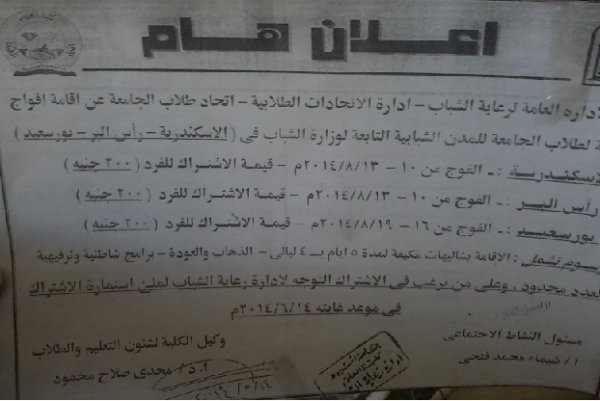 اعلان هام
الاداره العامة لرعاية الشباب - ادارة الاتحادات الطلابية - اتحاد طلاب الجامعة عن اقامة افواج
لطلاب الجامعة للمدن الشبابية التابعة لوزارة الشباب فى ( الاسكندرية - رأس البر - بورسعيد )
الاسكندرية :ـ الفوج من ١٠ - ٢٠١٤/٨/١٣م - قيمة الاشتراك للفرد ( ٢٠٠ جنيه )
رأس البر :ـ الفوج من ١٠ - ٢٠١٤/٨/١٣م - قيمة الاشتراك للفرد ( ٢٠٠ جنيه )
بورسعيد :ـ الفوج من ١٦ - ٢٠١٤/٨/١٩م - قيمة الاشتراك للفرد ( ٢٠٠ جنيه )
الرسوم تشمل : الاقامة بشاليهات مكيفة لمدة ٥ ايام بـ ٤ ليالى - الذهاب والعودة - برامج شاطئية وترفيهية
العدد محدود ، وعلى من يرغب فى الاشتراك التوجه لادارة رعاية الشباب لملئ استمارة الاشتراك
فى موعد غايته ٢٠١٤/٦/١٤م
مسئول النشاط الاجتماعى
أ / شيماء محمد فتحى
وكيل الكلية لشئون التعليم والطلاب
أ.د / مجدى صلاح محمود